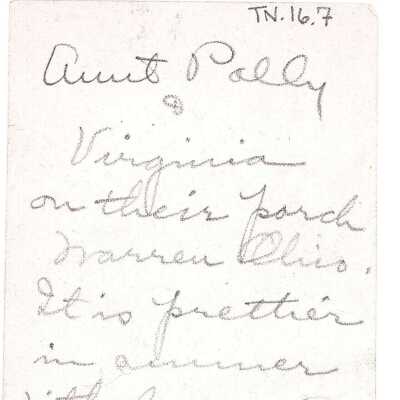 TN.16.7
Aunt Polly
&
Virginia
on their porch
Warren Ohio.
It is prettier
in summer